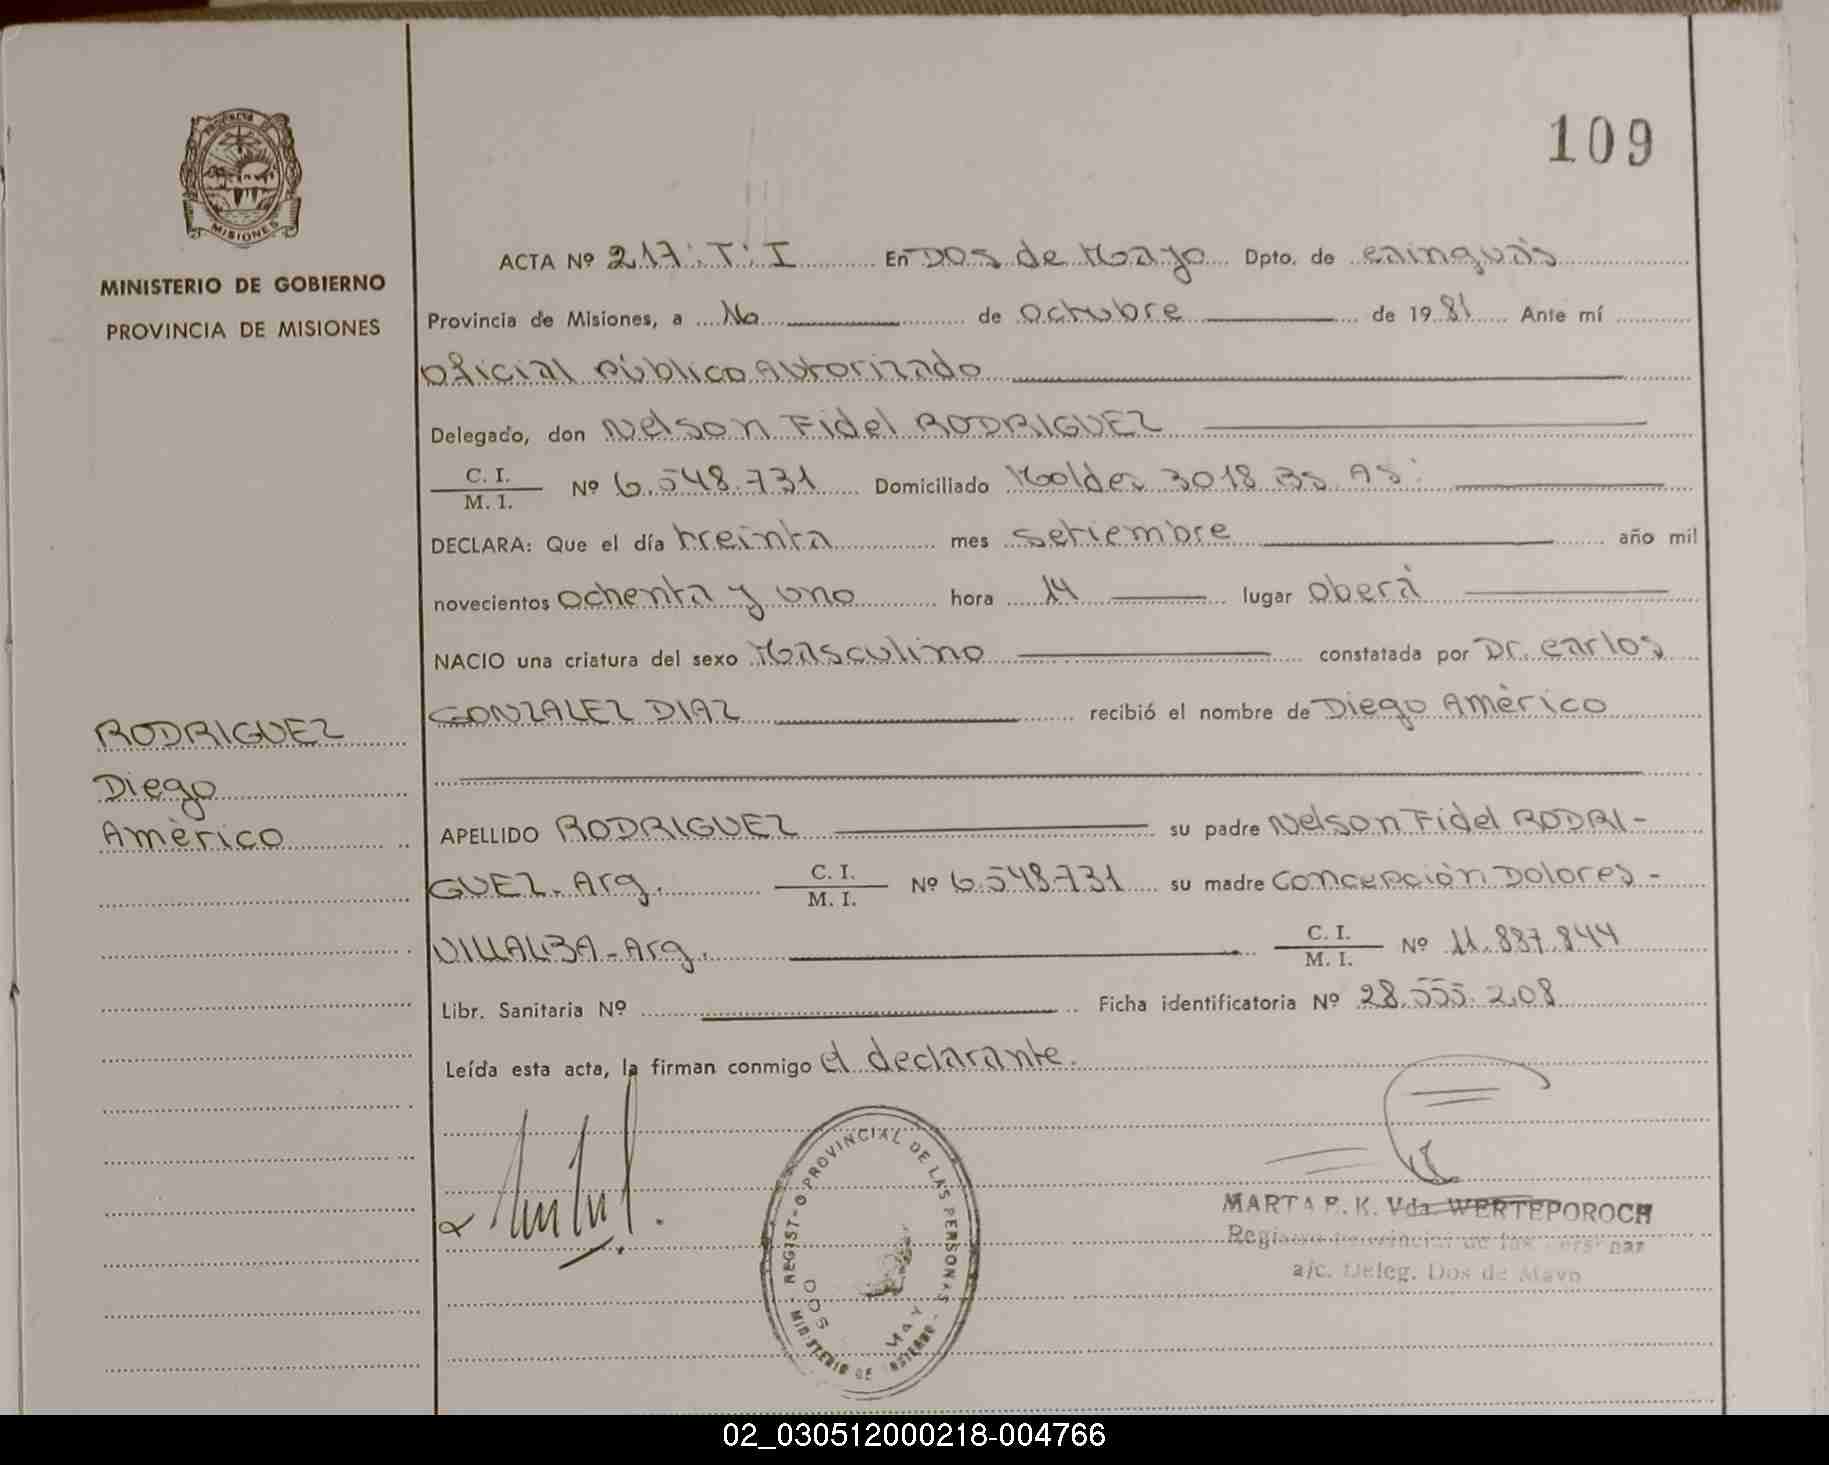 109
PROVINCIA
MISIONES
MINISTERIO DE GOBIERNO
PROVINCIA DE MISIONES
RODRIGUEZ
Diego
Amèrico
ACTA Nº 217: T: I En DOS de Mayo Dpto. de cainguàs
Provincia de Misiones, a 16 de octubre de 1981 Ante mí
oficial pùblico Autorizado
Delegado, don Nelson Fidel RODRIGUEZ
C. I.
M. I. Nº 6.548.731 Domiciliado Moldes 3018 Bs As:
DECLARA: Que el día treinta mes setiembre año mil
novecientos ochenta y uno hora 14 lugar oberà
NACIO una criatura del sexo Masculino constatada por Dr. carlos
GONZALEZ DIAZ recibió el nombre de Diego Amèrico
APELLIDO RODRIGUEZ su padre Nelson Fidel RODRI-
GUEZ. Arg. C. I.
M. I. Nº 6.548.731 su madre concepciòn Dolores -
VILLALBA - Arg. C. I.
M. I. Nº 11.837.844
Libr. Sanitaria Nº Ficha identificatoria Nº 28.555.208
Leída esta acta, la firman conmigo el declarante.
REGIST-O PROVINCIAL DE LAS PERSONAS
MINISTERIO DE
DOS MAY
MARTA E. K. Vda. WERTEPOROCH
Registro Provincial de las
a/c. Deleg. Dos de Mayo
02_030512000218-004766